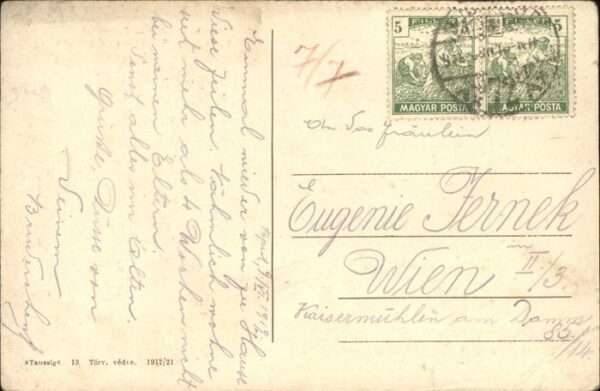 Einmal wieder von zu Hause
diese Zeilen. Nähmlich wohne
seit mehr als 4 Wochen nicht
bei meinen Eltern.
Sonst alles im Alten.
Grüsse, Küsse von
Deinem
7/7
5 FILLÉR
5 FILLÉR
MAGYAR POSTA
MAGYAR POSTA
An das Fräulein
Eugenie Jernek
in
Wien II/3.
Kaisermühlen am Damm
85
/14
«Taussig» 13 Törv. védve. 1917/21